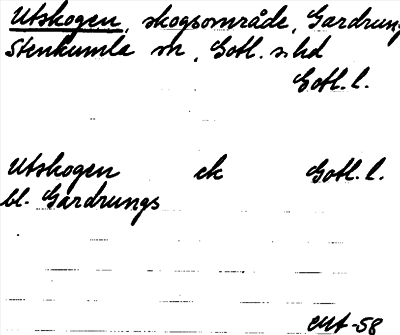 Utskogen, skogsområde, Gardrung
Stenkumla sn, Gotl. s. hd
Gotl. l.
Utskogen ek Gotl. l.
bl. Gardrungs
-58